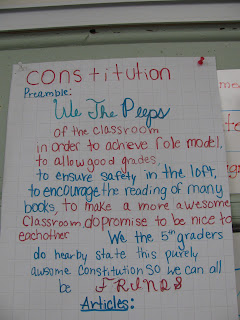 constitution
Preamble:
We The Peeps
of the classroom
in order to achieve role model,
to allow good grades,
to ensure safety in the loft,
to encourage the reading of many
books, to make a more awesome
Classroom do promise to be nice to
eachother We the 5th graders
do hearby state this purely
awsome Constitution so we can all
be FRINDS
Articles: